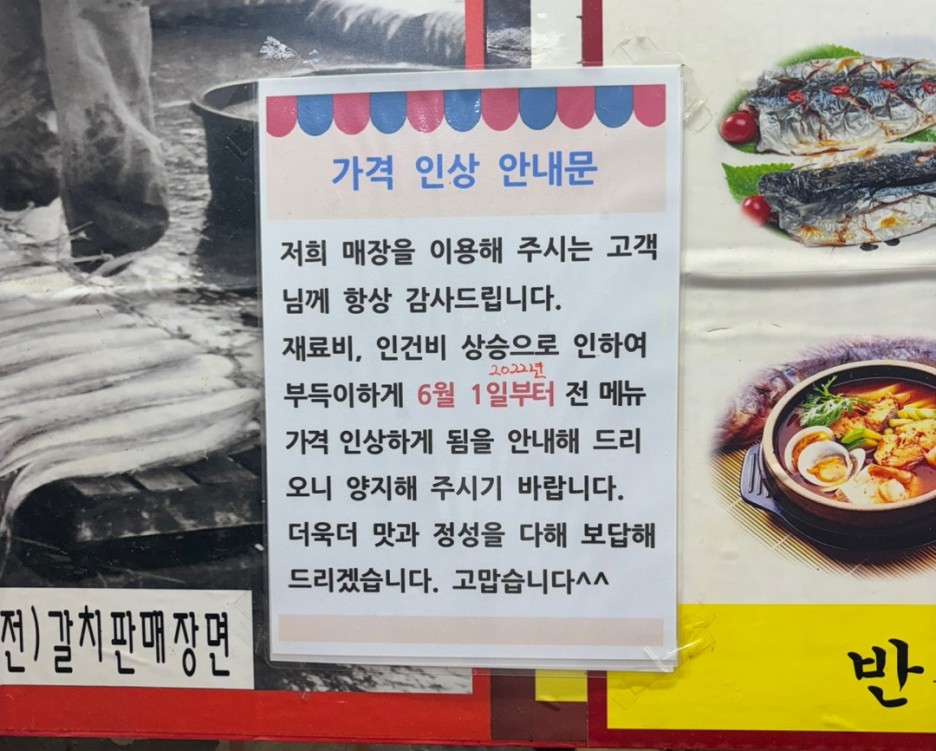 가격 인상 안내문
저희 매장을 이용해 주시는 고객
님께 항상 감사드립니다.
재료비, 인건비 상승으로 인하여
2022년
부득이하게 6월 1일부터 전 메뉴
가격 인상하게 됨을 안내해 드리
오니 양지해 주시기 바랍니다.
더욱더 맛과 정성을 다해 보답해
드리겠습니다. 고맙습니다^^
전)갈치판매장면
반